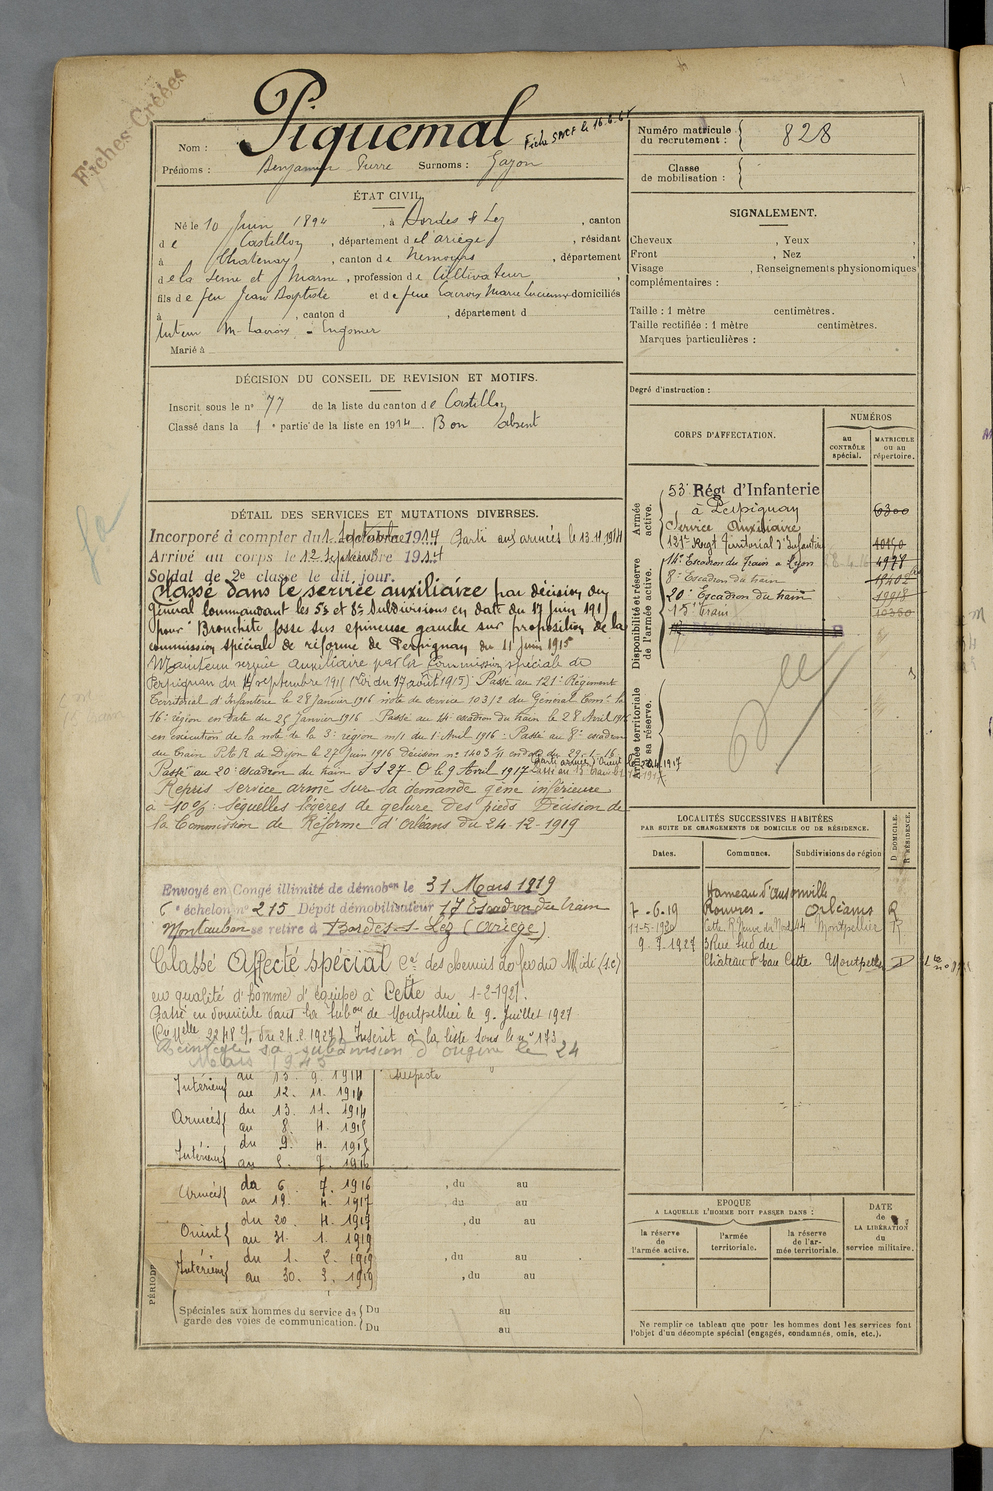 Fiches Créées
Piquemal
Nom :
Fiche SMCF le 16.6.61
Prénoms : Benjamin Pierre Surnoms : Gayon
Numéro matricule du recrutement : 828
Classe de mobilisation :
ÉTAT CIVIL.
Né le 10 Juin 1894, à Bordes s/ Lez, canton
de Castillon, département de l'ariège, résidant
à Chatenay, canton de Nemours, département
de la Seine et Marne, profession de Cultivateur,
fils de feu Jean Baptiste et de feue Lacroix Marie Lucienne domiciliés
à , canton d , département d
tuteur M. Lacroix à Engomer
Marié à
SIGNALEMENT.
Cheveux , Yeux ,
Front , Nez ,
Visage , Renseignements physionomiques
complémentaires :
Taille : 1 mètre centimètres.
Taille rectifiée : 1 mètre centimètres.
Marques particulières :
Degré d'instruction :
DÉCISION DU CONSEIL DE REVISION ET MOTIFS.
Inscrit sous le n° 77 de la liste du canton de Castillon
Classé dans la 1e partie de la liste en 1914. Bon absent
DÉTAIL DES SERVICES ET MUTATIONS DIVERSES.
Incorporé à compter du 1 Septembre 1914 Parti aux armées le 13.11.1914
Arrivé au corps le 12 Septembre 1914
Soldat de 2e classe le dit jour.
Classé dans le service auxiliaire par décision du
général Commandant les 5e et 8e Subdivisions en date du 17 juin 191
pour Bronchite fosse sus epineuse gauche sur proposition de la
commission spéciale de réforme de Perpignan du 11 juin 1915
Maintenu service auxiliaire par la Commission spéciale de
Perpignan du 14 septembre 1915 (Loi du 17 août 1915). Passé au 121e Régiment
Territorial d'Infanterie le 28 Janvier 1916 note de service 103/2 du Général Comt la
16e région en date du 25 Janvier 1916. Passé au 14e escadron du train le 28 Avril 1916
en exécution de la note de la 3e région m/1 du 1 Avril 1916. Passé au 8e escadron
du train P.A.R de Dijon le 27 Juin 1916
Passé au 20e escadron du train le 9 Avril 1917
Repris service armé sur sa demande gêne inférieure
à 10% : séquelles légères de gelure des pieds Décision de
la Commission de Réforme d'Orléans du 24-12-1919
Envoyé en Congé illimité de démobon le 31 Mars 1919
6e échelon n° 215 Dépôt démobilisateur 17 Escadron du train
Montauban se retire à Bordes-s-Lez (Ariège)
Classé Affecté spécial Cie des chemins de fer du Midi (s.c)
en qualité d'homme d'équipe à Cette du 1-2-1921.
Passé en domicile dans la subon de Montpellier le 9 Juillet 1927
Inscrit à la liste sous le n° 173
Réintègre sa subdivision d'origine le 24
Mars 1943
Intérieur au 13. 9. 1914
au 12. 11. 1914
Armées du 13. 11. 1914
au 8. 4. 1915
Intérieur du 9. 4. 1915
au 5. 7. 1916
Armées du 6. 7. 1916
au 19. 4. 1917
Orient du 20. 4. 1917
au 31. 1. 1919
Intérieur du 1. 2. 1919
au 30. 3. 1919
, du au
, du au
, du au
, du au
, du au
PÉRIODE
Spéciales aux hommes du service de garde des voies de communication.
Du au
Du au
CORPS D'AFFECTATION.
NUMÉROS
au CONTRÔLE spécial.
MATRICULE ou au répertoire.
Armée active.
Disponibilité et réserve de l'armée active.
Armée territoriale et sa réserve.
53e Régt d'Infanterie
à Perpignan 6300
Service Auxiliaire
121e Regt Territorial d'Infanterie 10150
14e Escadron du Train à Lyon 28.4.16 4978
8e Escadron du train 15402
20e Escadron du train 12918
15e train 10350
LOCALITÉS SUCCESSIVES HABITÉES
PAR SUITE DE CHANGEMENTS DE DOMICILE OU DE RÉSIDENCE.
D DOMICILE.
R RÉSIDENCE.
Dates. Communes. Subdivisions de région
Hameau d'Ansonville
7-6-19 Rouvres. Orléans R
11-5-1920 Cette R. 44 Montpellier R
9.7.1927 3 Rue Sud du
Château d'eau Cette Montpellier D
EPOQUE
A LAQUELLE L'HOMME DOIT PASSER DANS :
la réserve de l'armée active.
l'armée territoriale.
la réserve de l'armée territoriale.
DATE de LA LIBÉRATION du service militaire.
Ne remplir ce tableau que pour les hommes dont les services font
l'objet d'un décompte spécial (engagés, condamnés, omis, etc.).